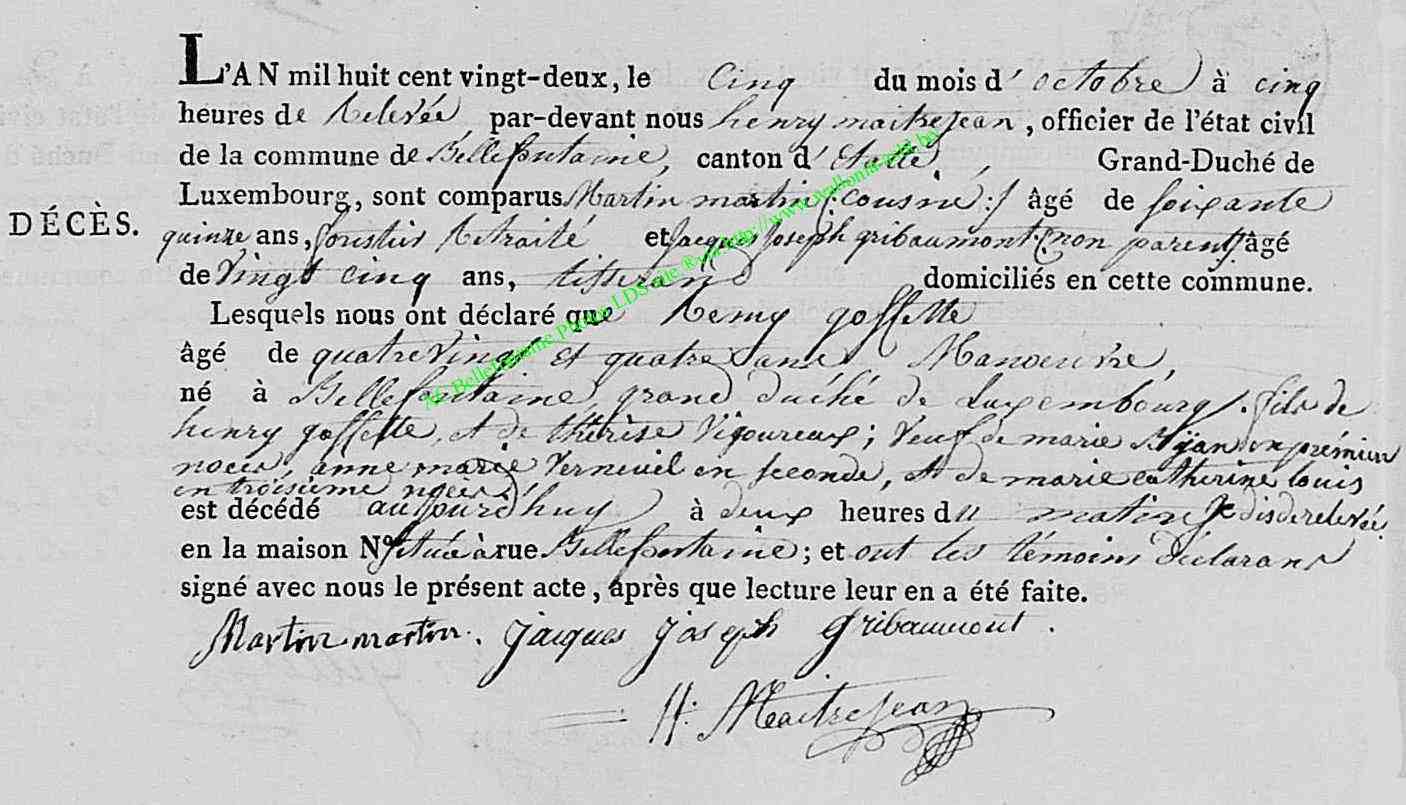 L'AN mil huit cent vingt-deux, le Cinq du mois d' octobre à cinq
heures de Relevée par-devant nous henry maitrejean, officier de l'état civil
de la commune de Bellefontaine, canton d' Etalle, Grand-Duché de
Luxembourg, sont comparus Martin martin (: cousin :) âgé de soixante
DÉCÈS.
quinze ans, forestier Retraité et Jacques Joseph gribaumont (non parent) âgé
de Vingt cinq ans, tisserand domiciliés en cette commune.
Lesquels nous ont déclaré que Remy goffette
âgé de quatre Vingt et quatre ans Manoeuvre,
né à Bellefontaine, grand duché de Luxembourg, fils de
henry goffette, et de thérèse Vigoureux; Veuf de marie en prémier
noces, anne marie Verneuil en seconde, et de marie catherine louis
en troisième noces
est décédé aujourd'huy à deux heures du matin Je dis de relevée
en la maison N° située à rue Bellefontaine; et ont les témoins déclarans
signé avec nous le présent acte, après que lecture leur en a été faite.
Martin martin. jacques joseph gribaumont.
H: Maitrejean